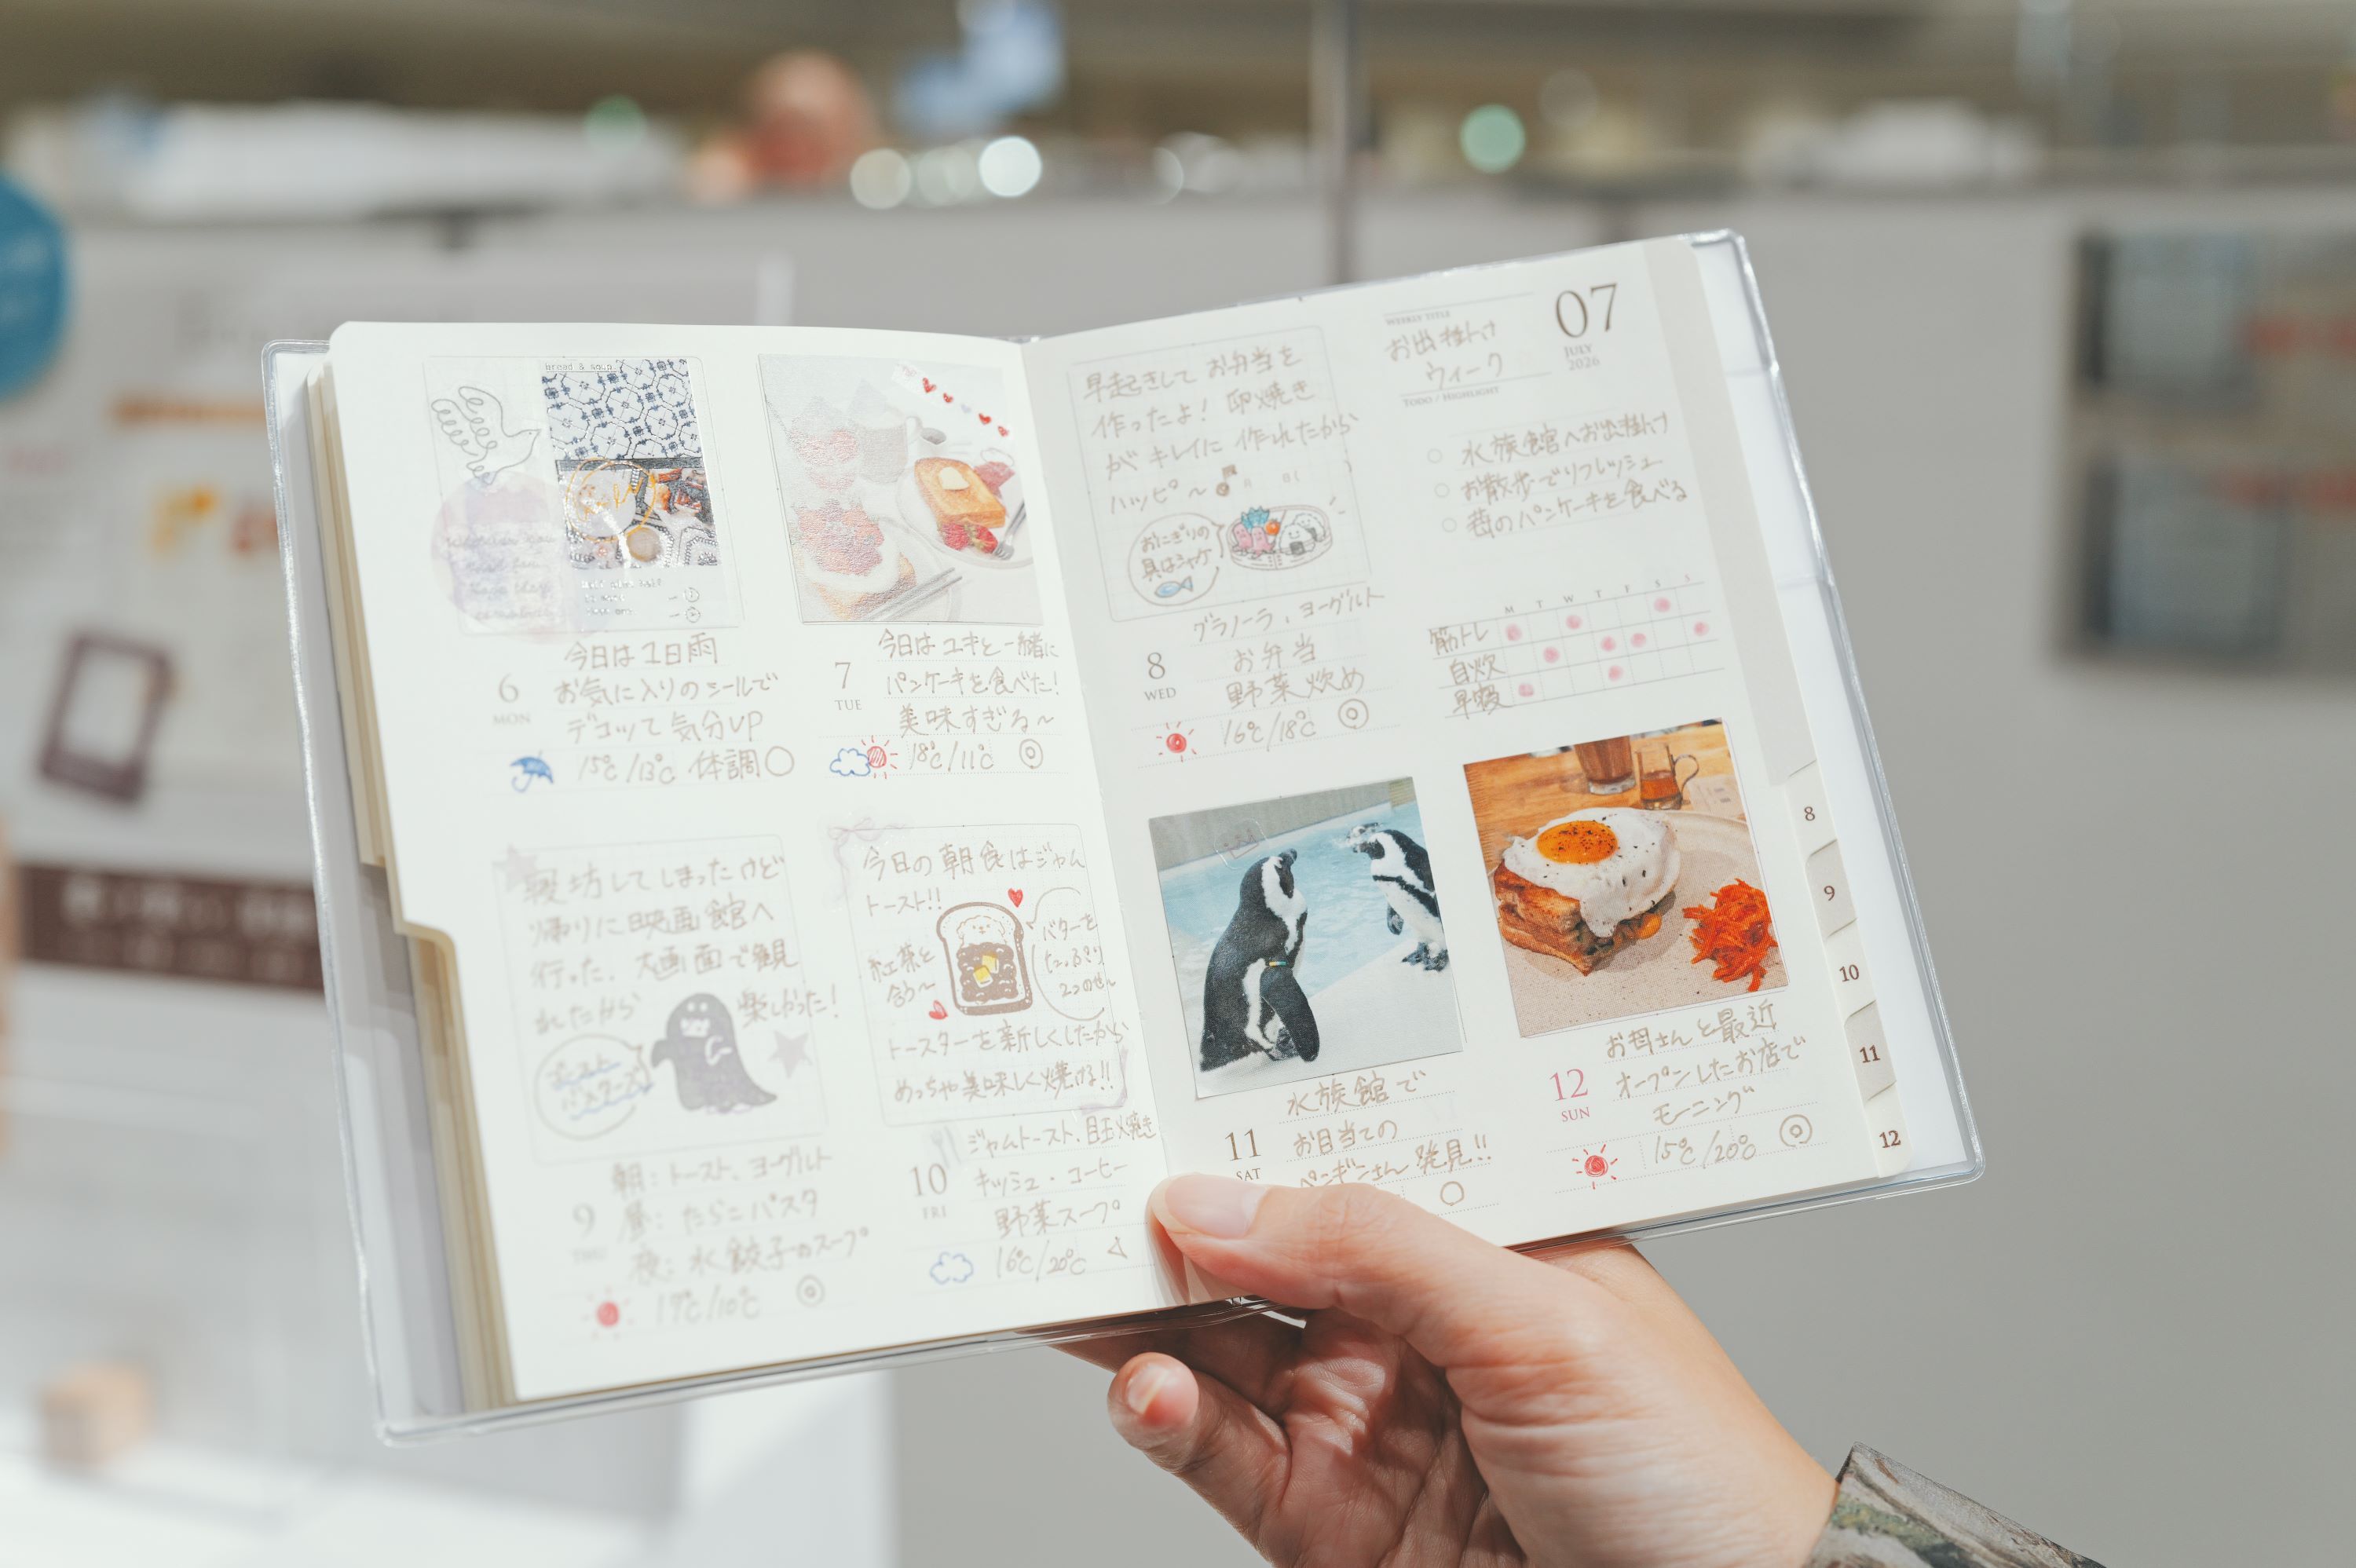 bread & soup
今日は1日雨
お気に入りのシールで
デコって気分UP
6
MON
15℃/13℃ 体調○
今日はユキと一緒に
パンケーキを食べた!
美味すぎる〜
7
TUE
18℃/11℃ ◎
早起きして お弁当を
作ったよ! 卵焼き
が キレイに 作れたから
ハッピ〜
おにぎりの
具はシャケ
グラノーラ、ヨーグルト
お弁当
野菜炒め
8
WED
16℃/18℃ ◎
WEEKLY TITLE
お出掛け
ウィーク
07
JULY
2026
TODO / HIGHLIGHT
水族館へお出掛け
お散歩でリフレッシュ
苺のパンケーキを食べる
M T W T F S S
筋トレ
自炊
早寝
寝坊してしまったけど
帰りに映画館へ
行った。大画面で観
れたから
楽しかった!
朝: トースト、ヨーグルト
昼: たらこパスタ
夜: 水餃子のスープ
9
THU
17℃/10℃ ◎
今日の朝食はジャム
トースト!!
紅茶と
合う〜
バターを
たっぷり
2つのせ〜
トースターを新しくしたから
めっちゃ美味しく焼ける!!
ジャムトースト、目玉焼き
キッシュ・コーヒー
野菜スープ
10
FRI
16℃/20℃
水族館で
お目当ての
ペンギンさん 発見!!
11
SAT
お母さんと最近
オープンしたお店で
モーニング
12
SUN
15℃/20℃ ◎
8
9
10
11
12